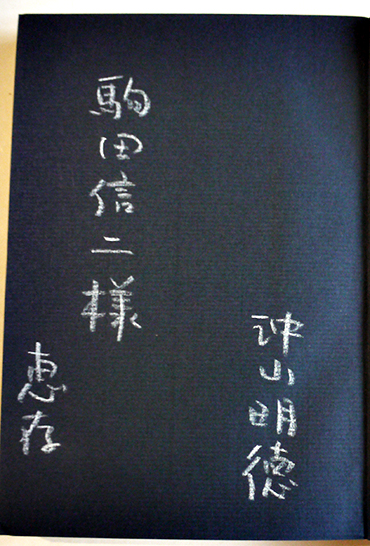 沖山明徳
駒田信二様
恵存